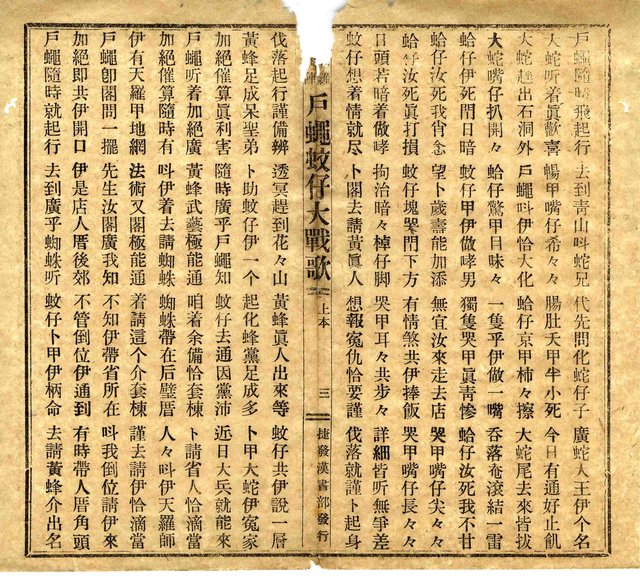 戶蠅隨時飛起行 去到靑山呌蛇兄 代先問化蛇仔子 廣蛇人王伊个名
人蛇听着眞歡喜 暢甲嘴仔希々々 腸肚夭甲半小死 今日有通好止飢
大蛇趖出石洞外 戶蠅呌伊恰大化 蛤仔京甲柿々擦 大蛇尾去來皆拔
大蛇嘴仔扒開々 蛤仔驚甲目昧々 一隻乎伊做一嘴 吞落奄滾結一雷
蛤仔伊死閙日暗 蚊仔甲伊做哮男 獨隻哭甲眞靑慘 蛤仔汝死我不甘
蛤仔汝死我肖念 望卜歲壽能加添 無宜汝來走去店 哭甲嘴仔尖々々
蛤仔汝死眞打損 蚊仔塊哭門下方 有情煞共伊捧飯 哭甲嘴仔長々々
日頭若暗着做哮 拘治暗々棹仔脚 哭甲耳々共步々 詳細皆听無爭差
蚊仔想着情就尽 卜閣去請黃眞人 想報冤仇恰要謹 伐落就謹卜起身
戶蠅蚊仔大戰歌 上本 三 捷發漢書部發行
伐落起行謹備辨 透冥趕到花々山 黃蜂眞人出來等 蚊仔共伊說一層
黃蜂足成呆聖弟 卜助蚊仔伊一个 起化蜂黨足成多 卜甲大蛇伊冤家
加絕催算眞利害 隨時廣乎戶蠅知 蚊仔去通因黨沛 近日大兵就能來
戶蠅听着加絕廣 黃蜂武藝極能通 咱着余備恰套棟 卜請省人恰滴當
加絕催算隨時有 呌伊着去請蜘蛛 蜘蛛帶在后壁厝 人々呌伊天羅師
伊有天羅甲地網 法術又閣極能通 着請這个介套棟 謹去請伊恰滴當
戶蠅卽閣問一擺 先生汝閣廣我知 不知伊帶省所在 呌我倒位請伊來
加絕即共伊開口 伊是店人厝後郊 不管倒位伊通到 有時帶人厝角頭
戶蠅隨時就起行 去到廣乎蜘蛛听 蚊仔卜甲伊柄命 去請黃蜂介出名